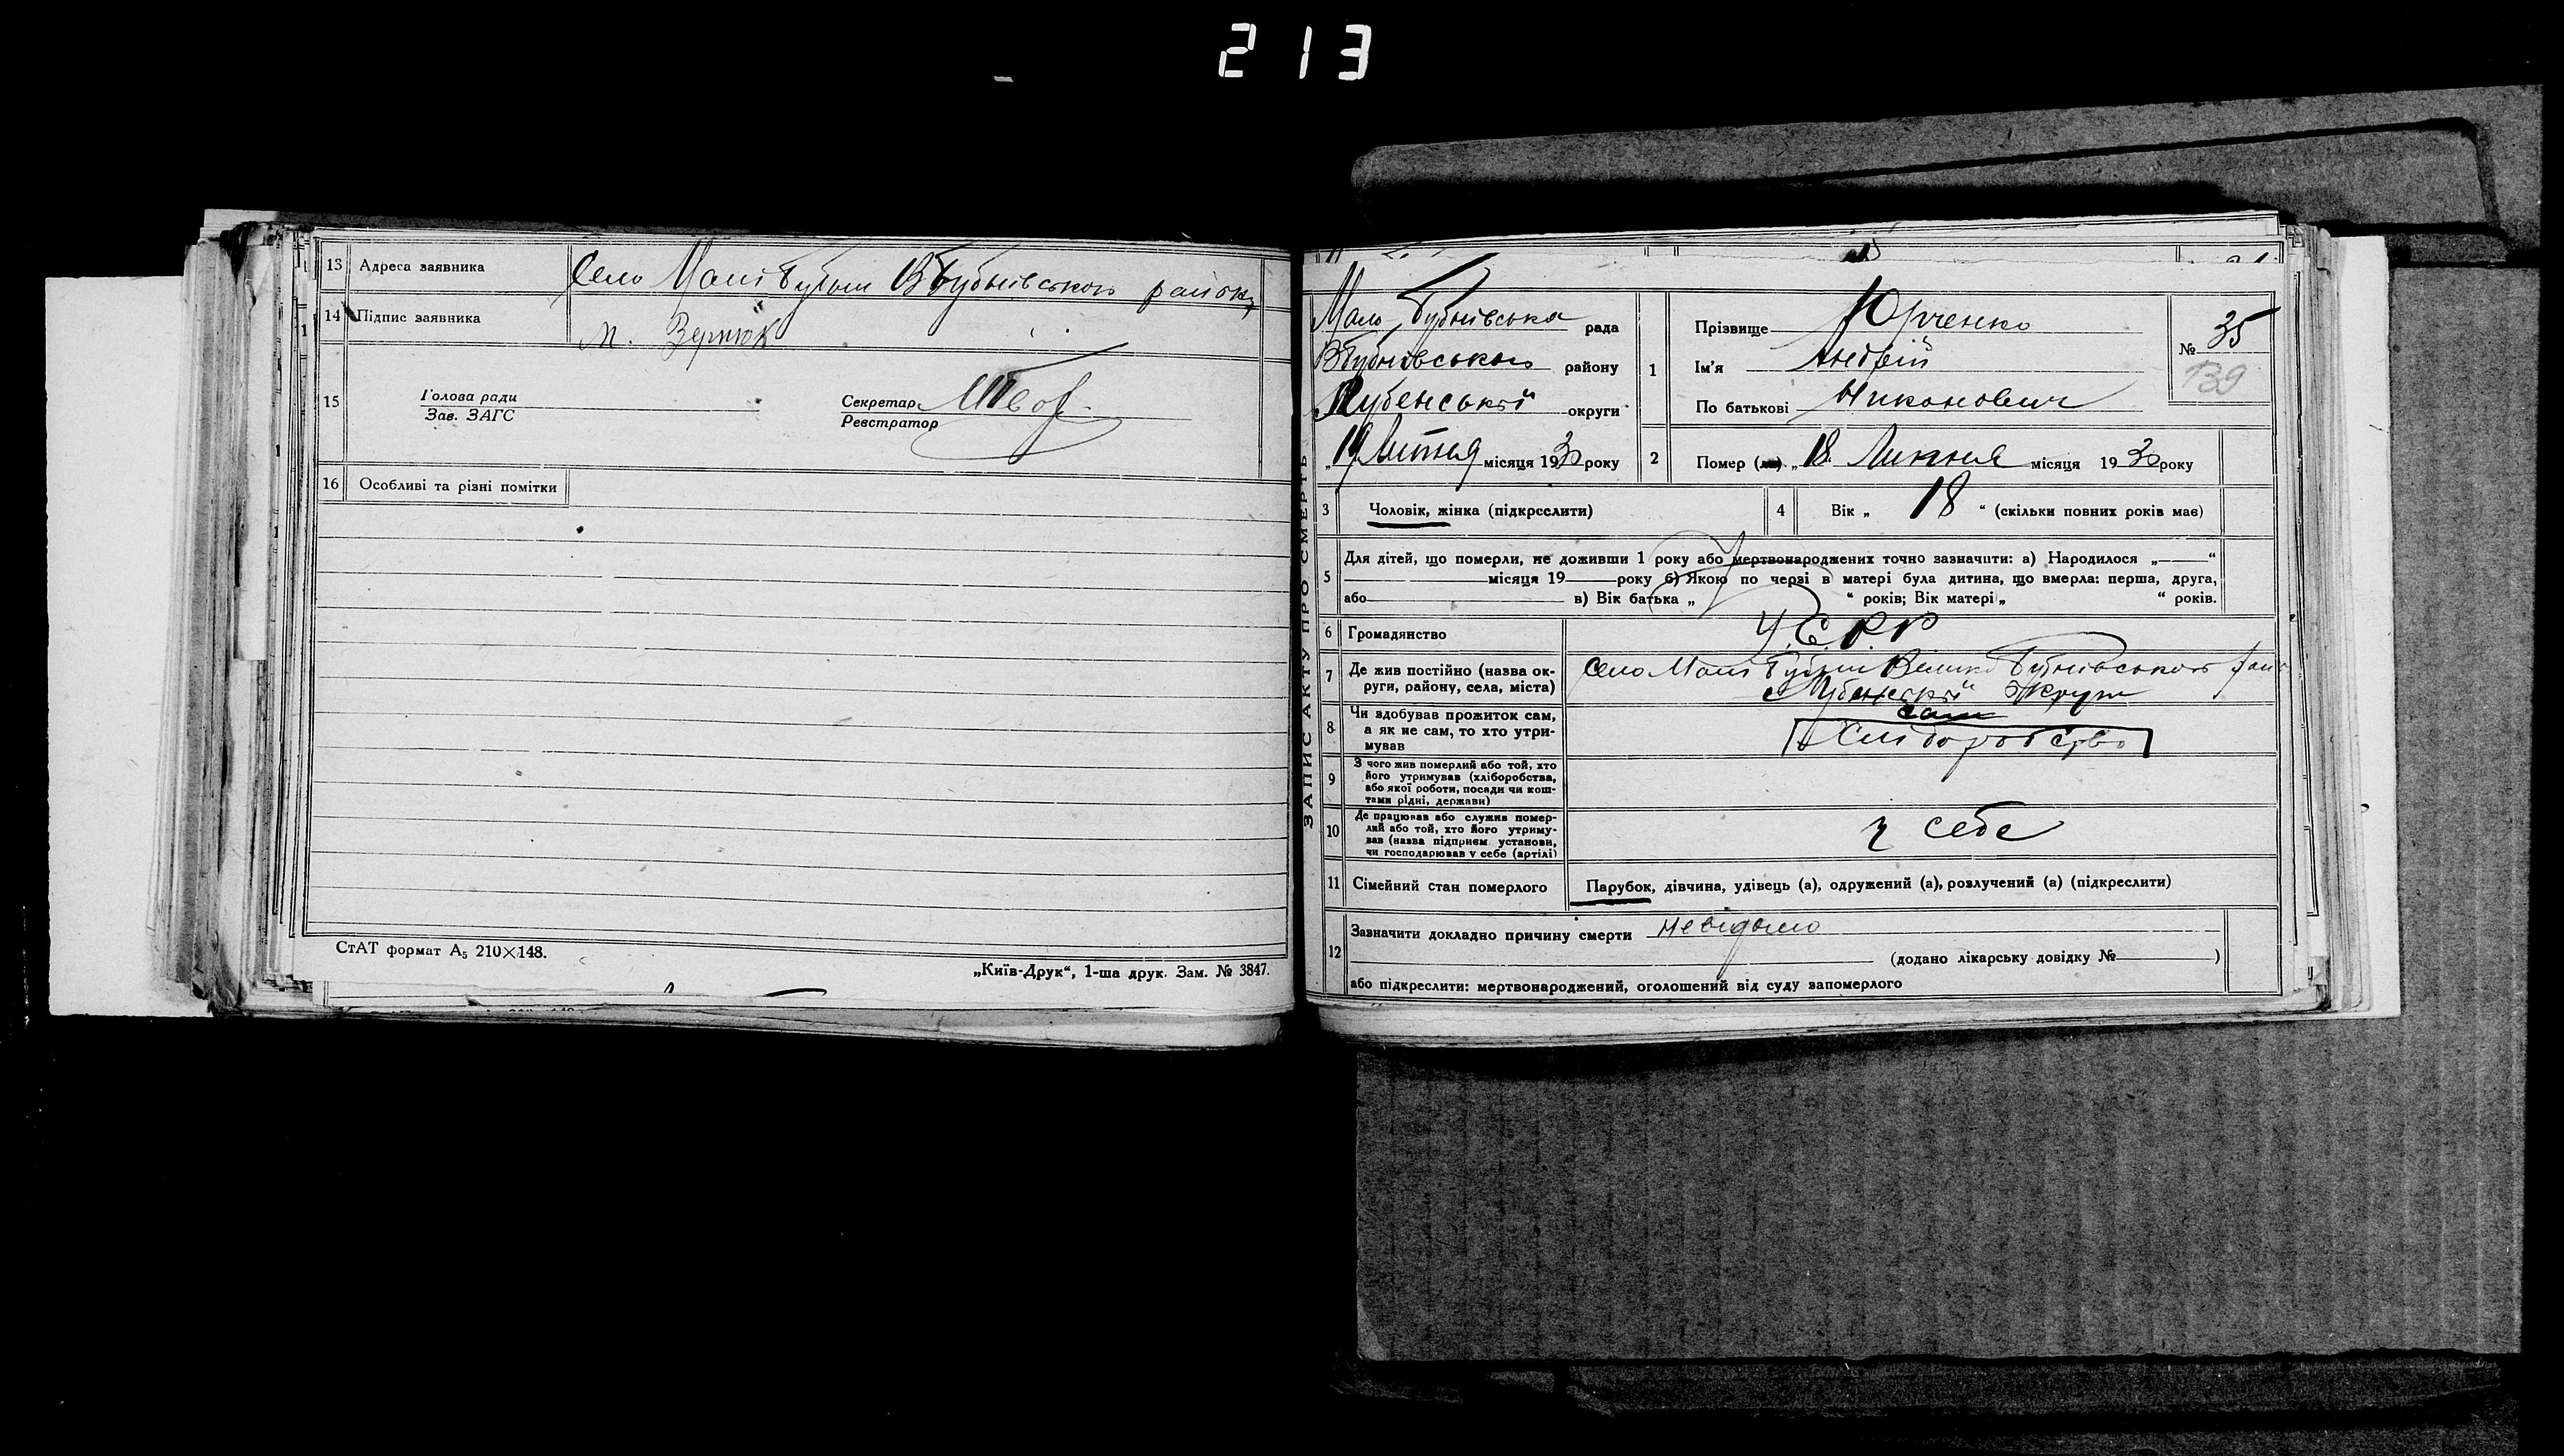 213
13 Адреса заявника Село Малі Бубни ВБубнівського району
14 Підпис заявника М.
15 Голова ради
Зав. ЗАГС
Секретар
Реєстратор
16 Особливі та різні помітки
СтАТ формат А5 210×148.
„Київ-Друк“, 1-ша друк. Зам. № 3847.
ЗАПИС АКТУ ПРО СМЕРТЬ
Мало Бубнівська рада
ВБубнівського району
Лубенської округи
„19 Липня місяця 1930 року
1 Прізвище Юрченко
Ім'я Андрій
По батькові Никонович
№ 35
139
2 Помер (ла) „18 Липня місяця 1930 року
3 Чоловік, жінка (підкреслити)
4 Вік „ 18 “ (скільки повних років має)
5 Для дітей, що померли, не доживши 1 року або мертвонароджених точно зазначити: а) Народилося „ “
місяця 19 року б) Якою по черзі в матері була дитина, що вмерла: перша, друга,
або в) Вік батька „ “ років; Вік матері „ “ років.
6 Громадянство У.С.Р.Р
7 Де жив постійно (назва округи, району, села, міста) Село Малі Бубни Велико Бубнівського рай
Лубенської Округи
8 Чи здобував прожиток сам, а як не сам, то хто утримував сам
Хліборобство
9 З чого жив померлий або той, хто його утримував (хліборобства, або якої роботи, посади чи коштами рідні, держави)
10 Де працював або служив померлий або той, хто його утримував (назва підприєм установи, чи господарював у себе (артілі) у себе
11 Сімейний стан померлого Парубок, дівчина, удівець (а), одружений (а), розлучений (а) (підкреслити)
12 Зазначити докладно причину смерти невідомо
(додано лікарську довідку № )
або підкреслити: мертвонароджений, оголошений від суду запомерлого